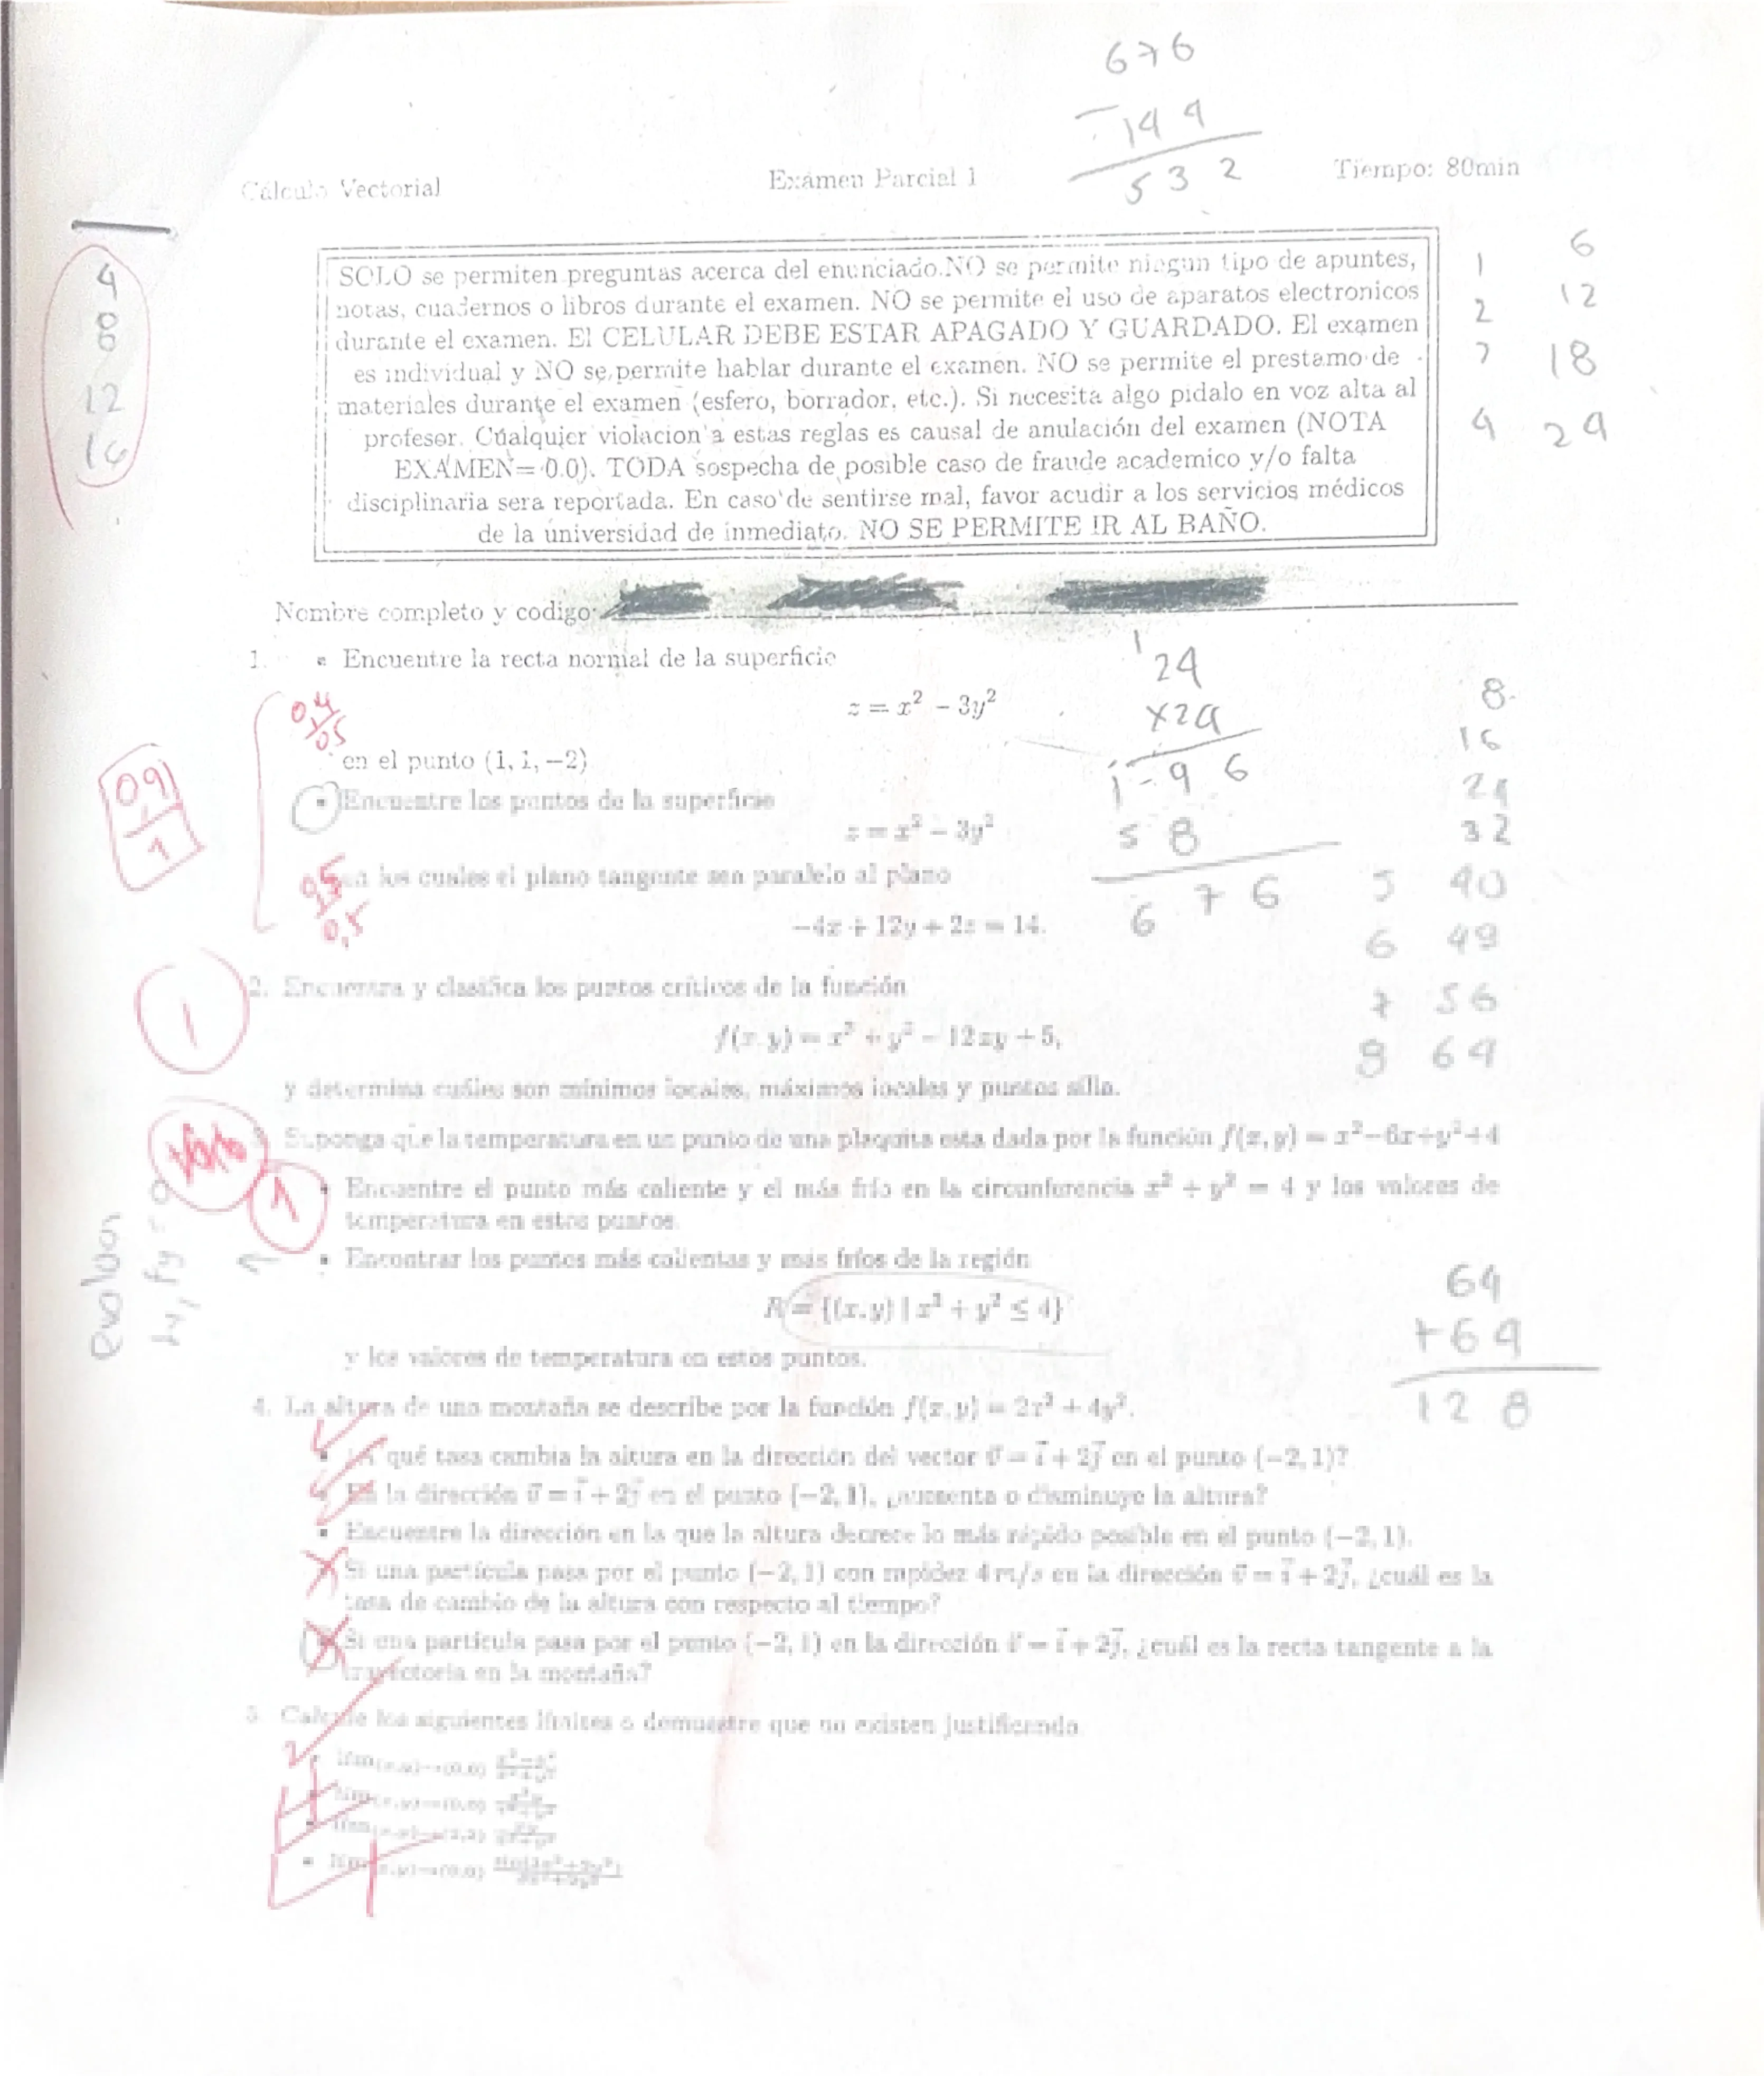 676
- 144
532
Cálculo Vectorial Examen Parcial 1 Tiempo: 80min
SOLO se permiten preguntas acerca del enunciado.NO se permite ningun tipo de apuntes,
notas, cuadernos o libros durante el examen. NO se permite el uso de aparatos electronicos
durante el examen. El CELULAR DEBE ESTAR APAGADO Y GUARDADO. El examen
es individual y NO se permite hablar durante el examen. NO se permite el prestamo de
materiales durante el examen (esfero, borrador, etc.). Si necesita algo pidalo en voz alta al
profesor. Cualquier violacion a estas reglas es causal de anulación del examen (NOTA
EXAMEN= 0.0). TODA sospecha de posible caso de fraude academico y/o falta
disciplinaria sera reportada. En caso de sentirse mal, favor acudir a los servicios médicos
de la universidad de inmediato. NO SE PERMITE IR AL BAÑO.
4
8
12
16
1 6
2 12
18
4 24
Nombre completo y codigo:
1. • Encuentre la recta normal de la superficie
z = x² − 3y²
en el punto (1, 1, −2)
• Encuentre los puntos de la superficie
z = x² − 3y²
en los cuales el plano tangente sea paralelo al plano
−4x + 12y + 2z = 14.
0.4
0.5
0.5
0,5
09
1
24
x24
96
58
676
8
16
24
32
5 40
6 48
7 56
8 64
2. Encuentra y clasifica los puntos críticos de la función
y determina cuáles son mínimos locales, máximos locales y puntos silla.
1
Suponga que la temperatura en un punto de una plaquita esta dada por la función f(x, y) = x²−6x+y²+4
• Encuentre el punto más caliente y el más frío en la circunferencia x² + y² = 4 y los valores de
temperatura en estos puntos.
• Encontrar los puntos más calientas y más fríos de la región
R = {(x, y) | x² + y² ≤ 4}
y los valores de temperatura en estos puntos.
1
64
+64
128
4. La altura de una montaña se describe por la función f(x, y) = 2x² + 4y².
• A qué tasa cambia la altura en la dirección del vector v⃗ = i⃗ + 2j⃗ en el punto (−2, 1)?
• En la dirección v⃗ = i⃗ + 2j⃗ en el punto (−2, 1), ¿aumenta o disminuye la altura?
• Encuentre la dirección en la que la altura decrece lo más rápido posible en el punto (−2, 1).
• Si una partícula pasa por el punto (−2, 1) con rapidez 4 m/s en la dirección v⃗ = i⃗ + 2j⃗, ¿cuál es la
tasa de cambio de la altura con respecto al tiempo?
• Si una partícula pasa por el punto (−2, 1) en la dirección v⃗ = i⃗ + 2j⃗, ¿cuál es la recta tangente a la
trayectoria en la montaña?
5. Calcule los siguientes límites o demuestre que no existen justificando